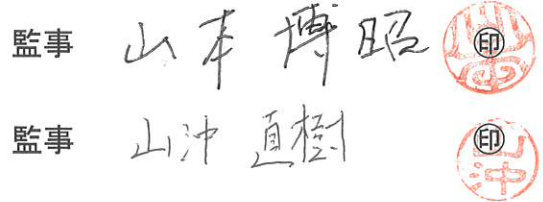 監事 山本 博昭 ㊞
監事 山沖 直樹 ㊞